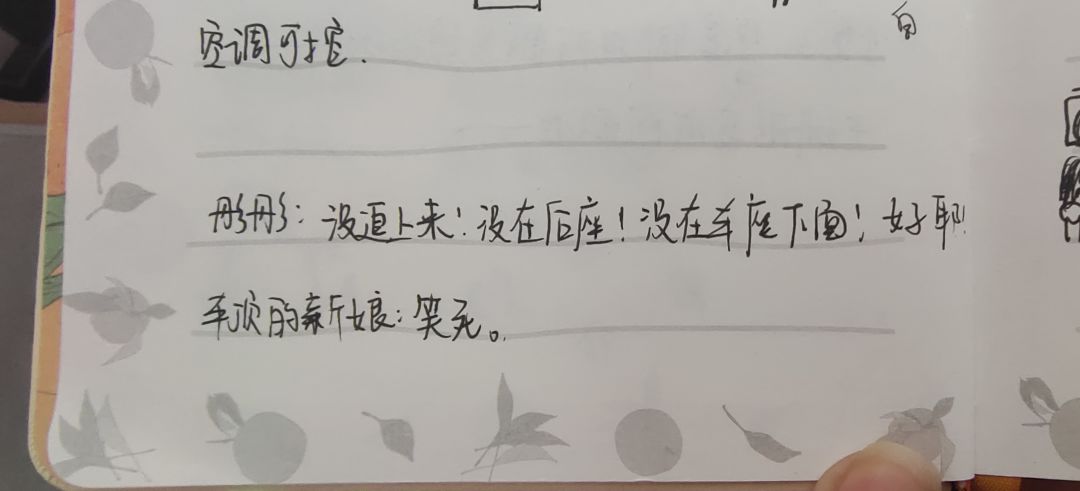 白
空调可控.
彤彤：没追上来！没在后座！没在车座下面！好耶！
车顶的新娘：笑死。